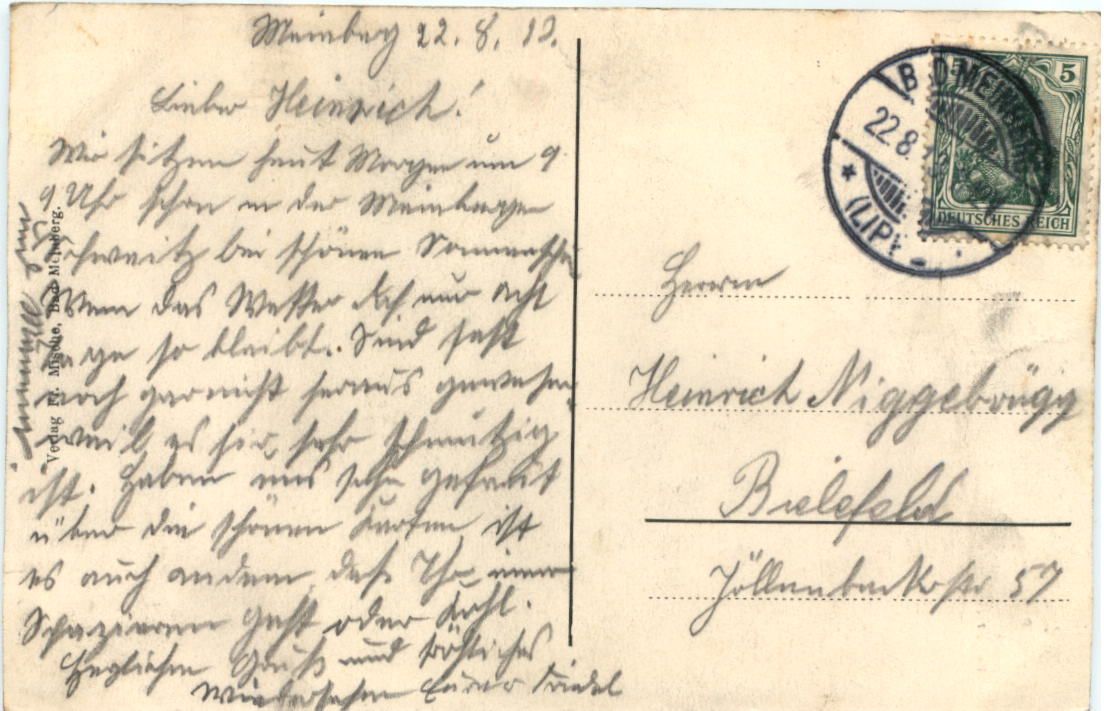 Meinberg 22. 8. 12.
Lieber Heinrich!
Wir sitzen heut Morgen um 9
9 Uhr schon in der Meinberger
Schweitz bei schönen Sonnenschein
Wenn das Wetter doch nur acht
Tage so bleibt. Sind fast
noch garnicht heraus gewesen
weil es hir sehr schmutzig
ist. Haben uns sehr gefreut
über die schönen Karten, ist
es auch das
Spazieren geht oder
Herzlichen Gruß und fröhliches
Wiedersehen Friedel
Verlag Fr. Mische, Bad Meinberg.
BAD MEINBERG
22.8.
(LIPPE)
5 5
DEUTSCHES REICH
Herren
Heinrich Niggebrügg
Bielefeld
Jöllenbeckerstr 57